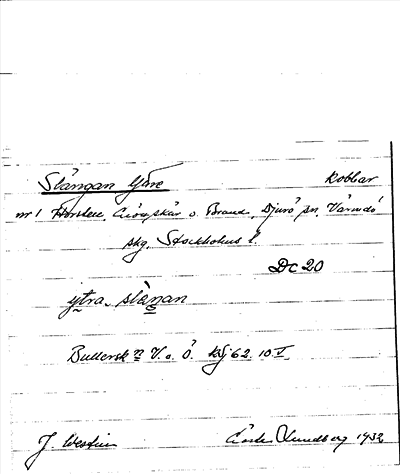 Slängan Yttre Kobbar
nr 1 Horsten, o. Brand, Djurö sn. Värmdö
skg. Stockholms l.
DC 20
ytra slängan
Bullersk V. o. Ö. kbj 62 10 V
J Westin Lundberg 1932